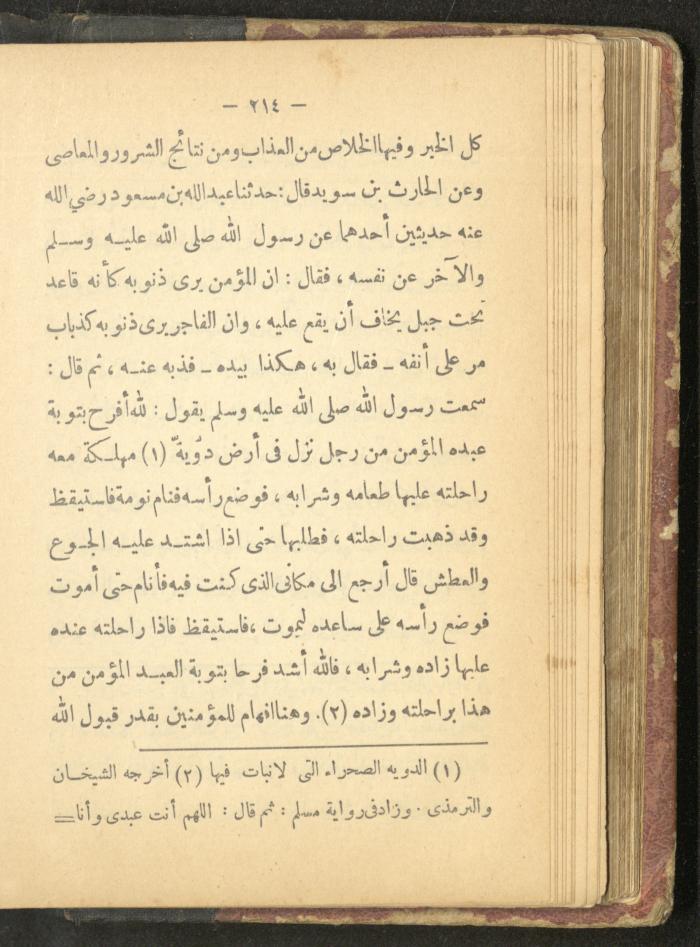 — ٢١٤ —
كل الخير وفيها الخلاص من العذاب ومن نتائج الشرور والمعاصى
وعن الحارث بن سويد قال: حدثنا عبدالله بن مسعود رضي الله
عنه حديثين أحدهما عن رسول الله صلى الله عليه وسلم
والآخر عن نفسه ، فقال : ان المؤمن يرى ذنوبه كأنه قاعد
تحت جبل يخاف أن يقع عليه ، وان الفاجر يرى ذنوبه كذباب
مر على أنفه ـ فقال به ، هكذا بيده ـ فذبه عنه ، ثم قال :
سمعت رسول الله صلى الله عليه وسلم يقول : لله أفرح بتوبة
عبده المؤمن من رجل نزل فى أرض دوية (١) مهلكة معه
راحلته عليها طعامه وشرابه ، فوضع رأسه فنام نومة فاستيقظ
وقد ذهبت راحلته ، فطلبها حتى اذا اشتد عليه الجوع
والعطش قال أرجع الى مكانى الذى كنت فيه فأنام حتى أموت
فوضع رأسه على ساعده ليموت ، فاستيقظ فاذا راحلته عنده
عليها زاده وشرابه ، فالله أشد فرحا بتوبة العبد المؤمن من
هذا براحلته وزاده (٢). وهنا افهام للمؤمنين بقدر قبول الله
(١) الدويه الصحراء التى لانبات فيها (٢) أخرجه الشيخان
والترمذى . وزاد فى رواية مسلم : ثم قال : اللهم أنت عبدى وأنا=